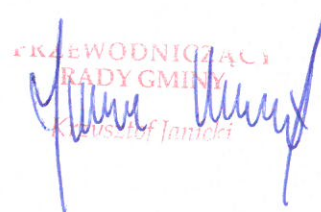 PRZEWODNICZĄCY
RADY GMINY
Krzysztof Janicki